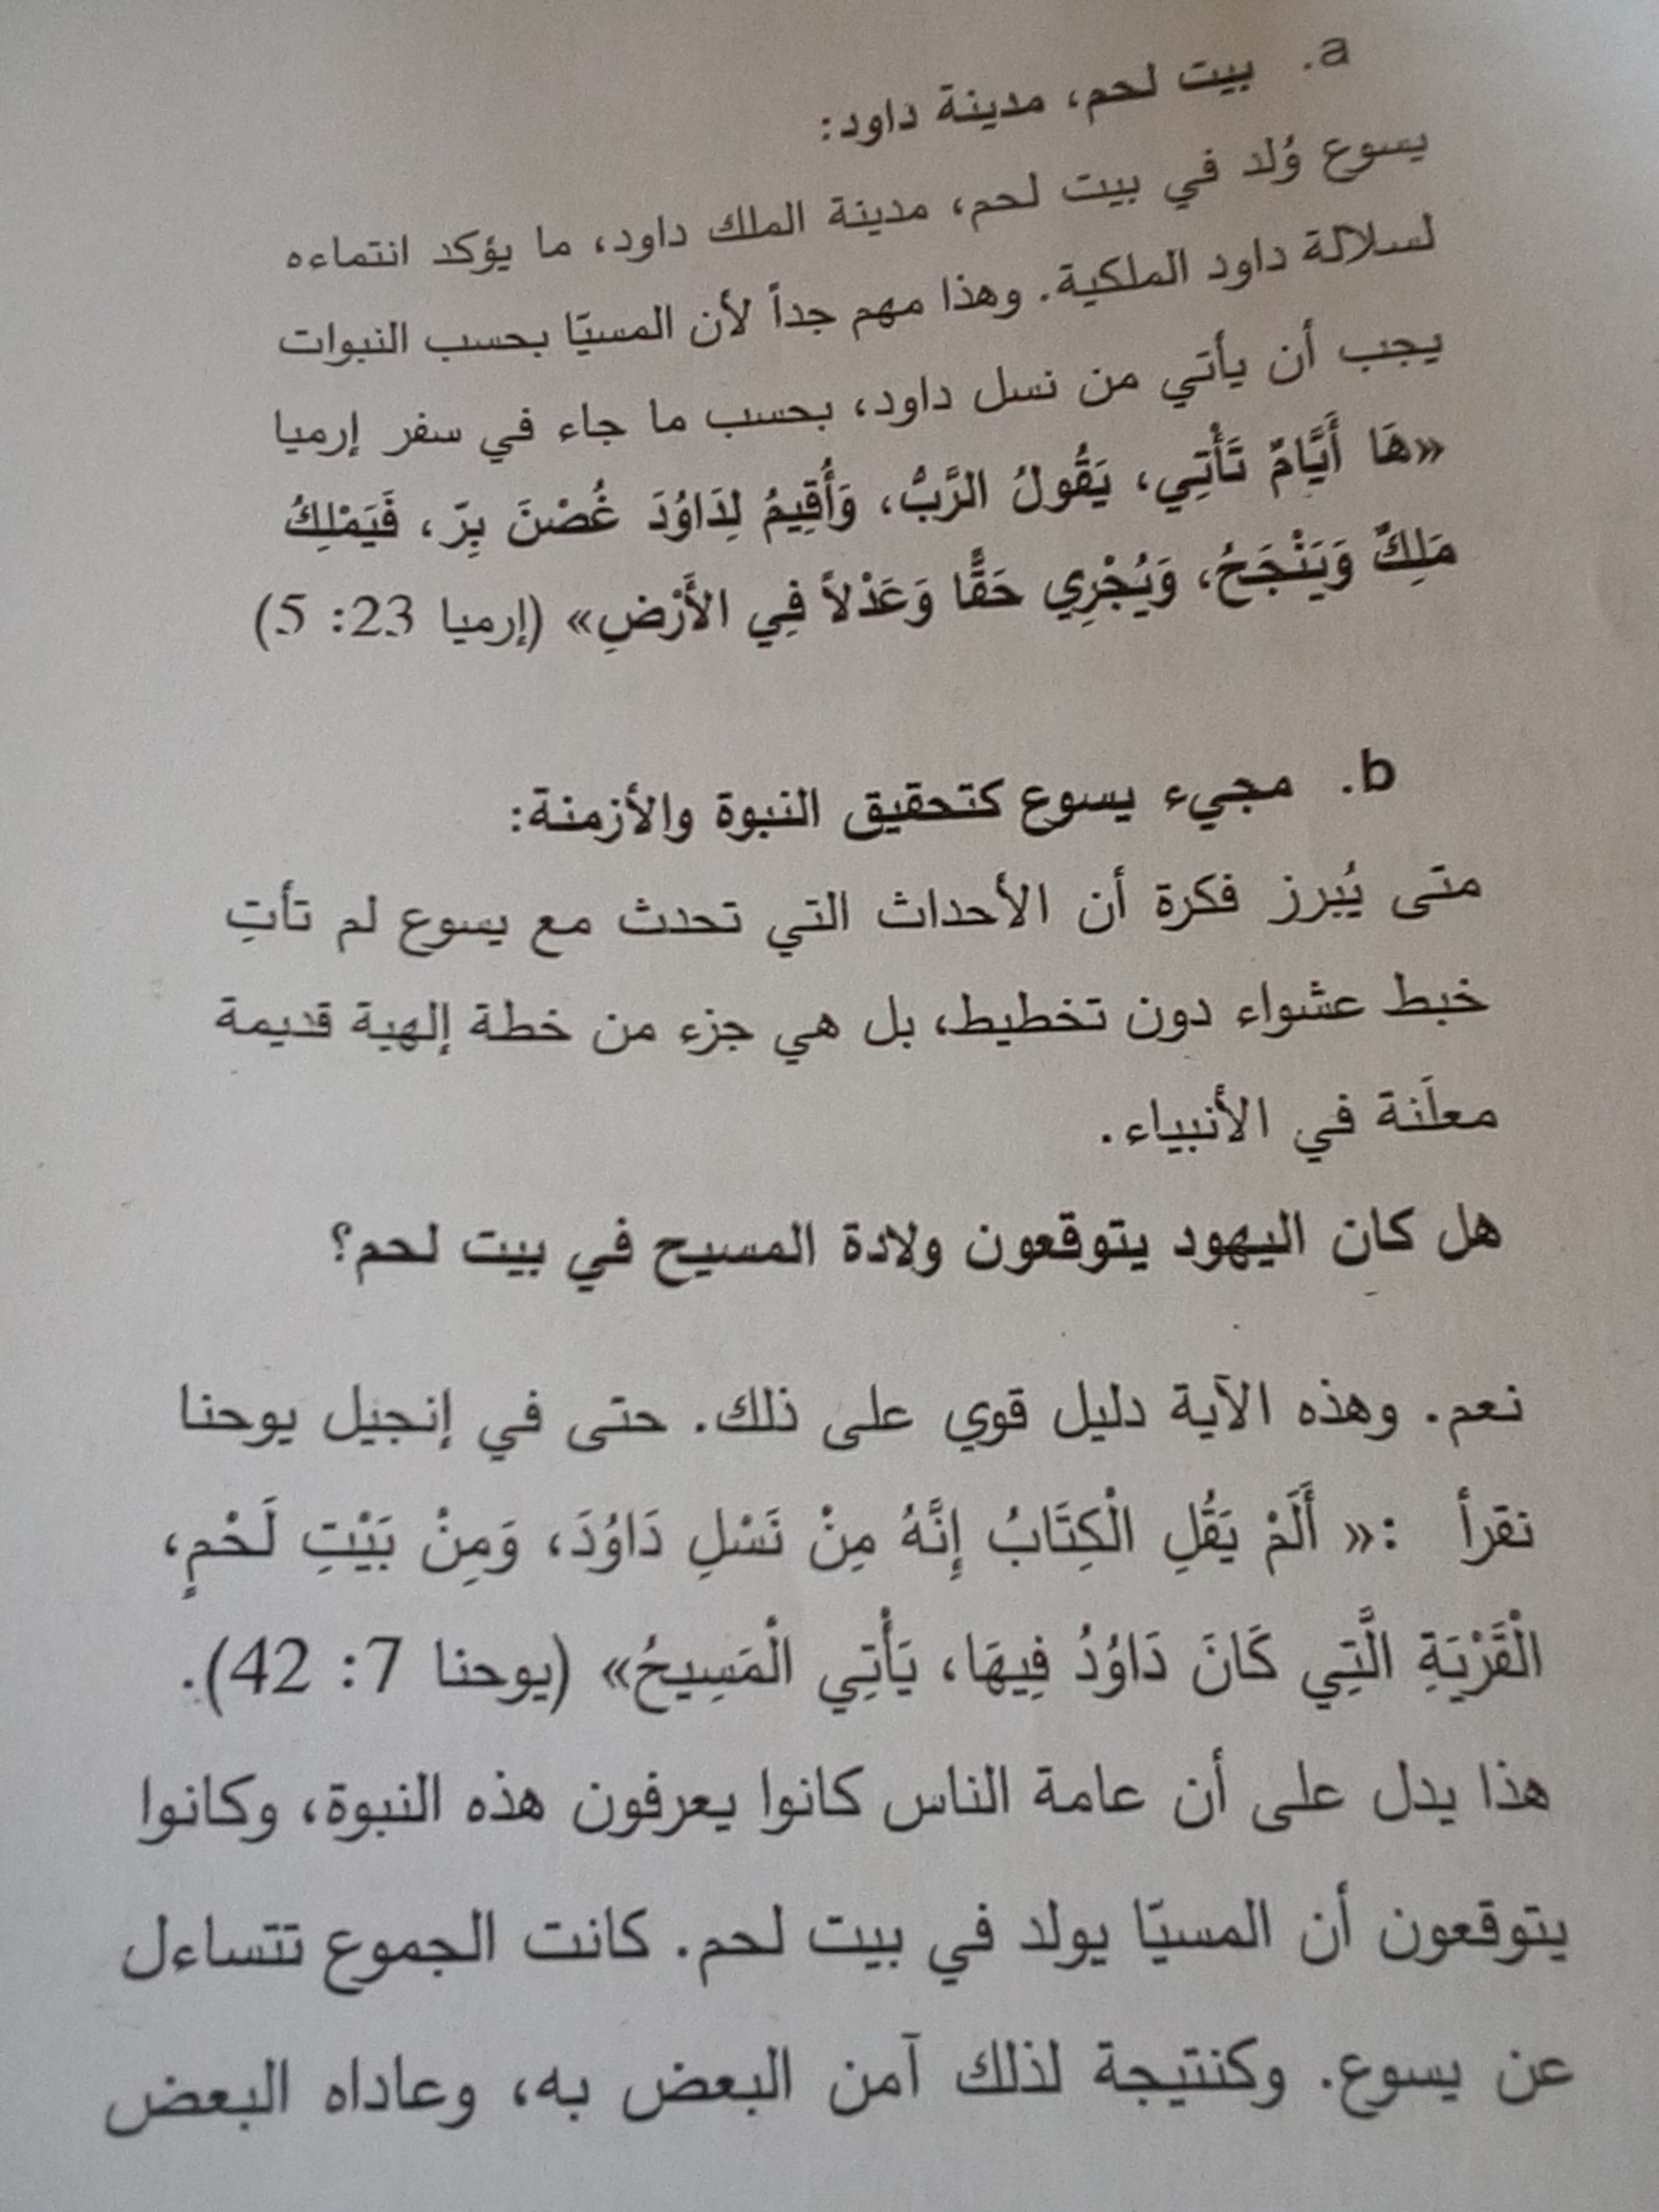 a. بيت لحم، مدينة داود:
يسوع وُلد في بيت لحم، مدينة الملك داود، ما يؤكد انتماءه
لسلالة داود الملكية. وهذا مهم جداً لأن المسيّا بحسب النبوات
يجب أن يأتي من نسل داود، بحسب ما جاء في سفر إرميا
«هَا أَيَّامٌ تَأْتِي، يَقُولُ الرَّبُّ، وَأُقِيمُ لِدَاوُدَ غُصْنَ بِرّ، فَيَمْلِكُ
مَلِكٌ وَيَنْجَحُ، وَيُجْرِي حَقًّا وَعَدْلاً فِي الأَرْضِ» (إرميا 23: 5)
b. مجيء يسوع كتحقيق النبوة والأزمنة:
متى يُبرز فكرة أن الأحداث التي تحدث مع يسوع لم تأتِ
خبط عشواء دون تخطيط، بل هي جزء من خطة إلهية قديمة
معلَنة في الأنبياء.
هل كان اليهود يتوقعون ولادة المسيح في بيت لحم؟
نعم. وهذه الآية دليل قوي على ذلك. حتى في إنجيل يوحنا
نقرأ :« أَلَمْ يَقُلِ الْكِتَابُ إِنَّهُ مِنْ نَسْلِ دَاوُدَ، وَمِنْ بَيْتِ لَحْمٍ،
الْقَرْيَةِ الَّتِي كَانَ دَاوُدُ فِيهَا، يَأْتِي الْمَسِيحُ» (يوحنا 7: 42).
هذا يدل على أن عامة الناس كانوا يعرفون هذه النبوة، وكانوا
يتوقعون أن المسيّا يولد في بيت لحم. كانت الجموع تتساءل
عن يسوع. وكنتيجة لذلك آمن البعض به، وعاداه البعض